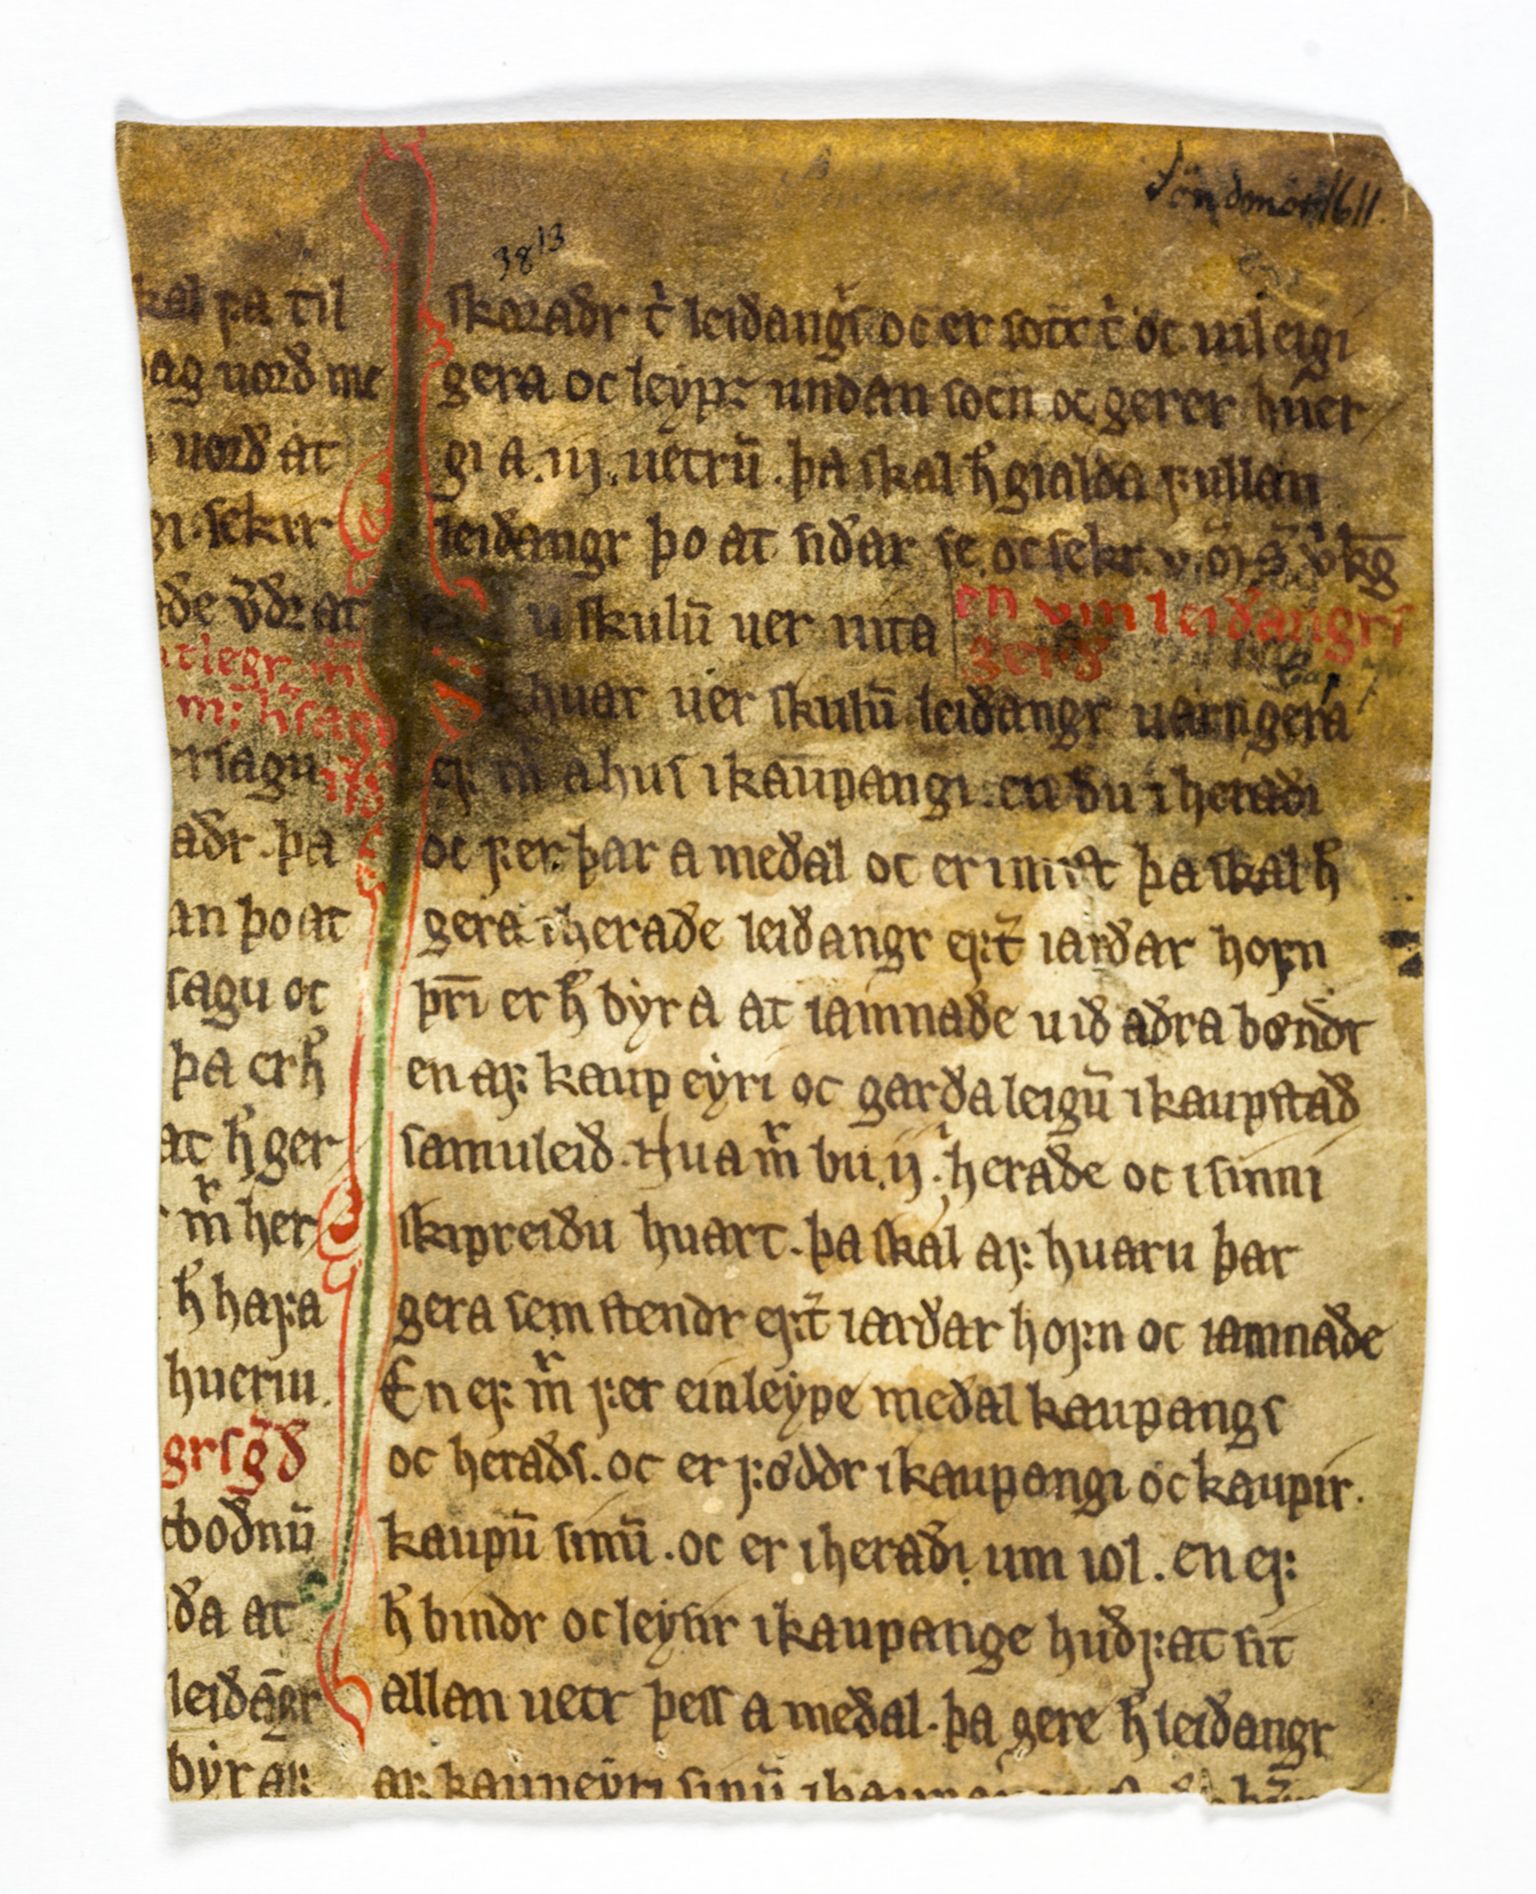 Søndmør 1611.
38 13
skal fa til
dag uorð me
uorð at
gi. sekir
ðe v̄ðr at
saga
sagu
aðr. þa
an þo at
sagu oc
þa er h̄
at h̄ ger
m̄ her
h̄ hafa
hueriu.
grſ gð
tboðnū
ða at
leiðāgr
byr af
skoraðr t̓ leiðangrſ oc er sottr t̓ oc uil eigi
gera oc leypr undan socn oc gerer huer
gi a .iij. uetrū. þa skal h̄ gialda fullan
leiðangr þo at siðar se. oc sekr. v
u skulū uer uita en vm leiðangrs
gerð
Cap 7
huar uer skulū leiðangr uarn gera
ef m̄ a hus i kaupangi. en bu i heraði
oc fer þar a meðal oc er í uiſt þa skal h̄
gera i heraðe leiðangr eft̓ iarðar hofn
þr̄i er h̄ byr a at iamnaðe uið aðra bøndr
en af kaup eyri oc garða leigū i kaupstað
samuleið. Hua m̄ bu .ij. i heraðe oc i sinni
skipreiðu huart. þa skal af huaru þar
gera sem stendr eft̓ iarðar hofn oc iamnaðe
En ef m̄ fer einleype meðal kaupangs
oc heraðs. oc er føddr i kaupangi oc kaupir
kaupū sinū. oc er i heraði um iol. en ef
h̄ bindr oc leysir i kaupange huðfat sit
allan uetr þess a meðal. þa gere h̄ leiðangr
af kaupeyri sinū i kaupa